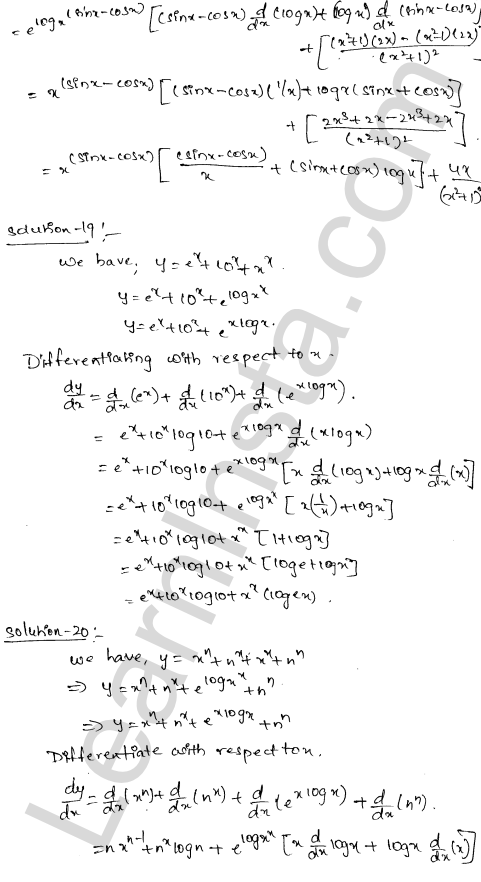 = e^{logx (sinx-cosx)} [(sinx-cosx) d/dx (logx) + (logx) d/dx (sinx-cosx)]
+ [(x²+1)(2x) - (x²-1)(2x) / (x²+1)²]
= x^{(sinx-cosx)} [(sinx-cosx)(1/x) + logx (sinx+cosx)]
+ [2x³+2x-2x³+2x / (x²+1)²]
= x^{(sinx-cosx)} [(sinx-cosx)/x + (sinx+cosx) logx] + 4x/(x²+1)²
Solution-19:-
We have, y = e^x + 10^x + x^x.
y = e^x + 10^x + e^{logx^x}
y = e^x + 10^x + e^{xlogx}.
Differentiating with respect to x.
dy/dx = d/dx (e^x) + d/dx (10^x) + d/dx (e^{xlogx}).
= e^x + 10^x log10 + e^{xlogx} d/dx (xlogx)
= e^x + 10^x log10 + e^{xlogx} [x d/dx (logx) + logx d/dx (x)]
= e^x + 10^x log10 + e^{logx^x} [x(1/x) + logx]
= e^x + 10^x log10 + x^x [1+logx]
= e^x + 10^x log10 + x^x [loge+logx]
= e^x + 10^x log10 + x^x (logex).
Solution-20:-
We have, y = x^n + n^x + x^x + n^n
⇒ y = x^n + n^x + e^{logx^x} + n^n
⇒ y = x^n + n^x + e^{xlogx} + n^n
Differentiate with respect to x.
dy/dx = d/dx (x^n) + d/dx (n^x) + d/dx (e^{xlogx}) + d/dx (n^n).
= nx^{n-1} + n^x logn + e^{logx^x} [x d/dx logx + logx d/dx (x)]
LearnInsta.com